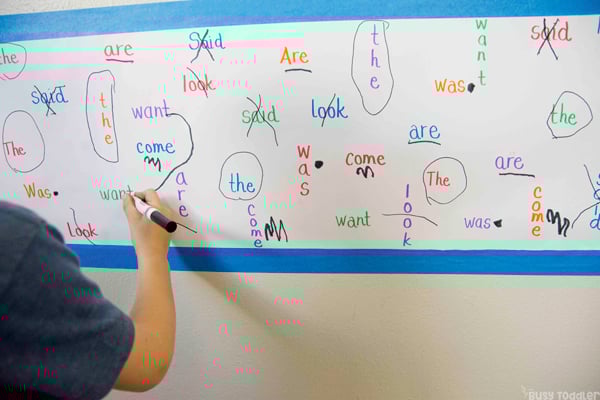 the
are
Said
Are
the
want
said
look
was.
said
the
want
said
look
the
The
come
are
was.
come
are
Was.
want
are
the
The
come
Look
come
want
look
was.
BUSY TODDLER